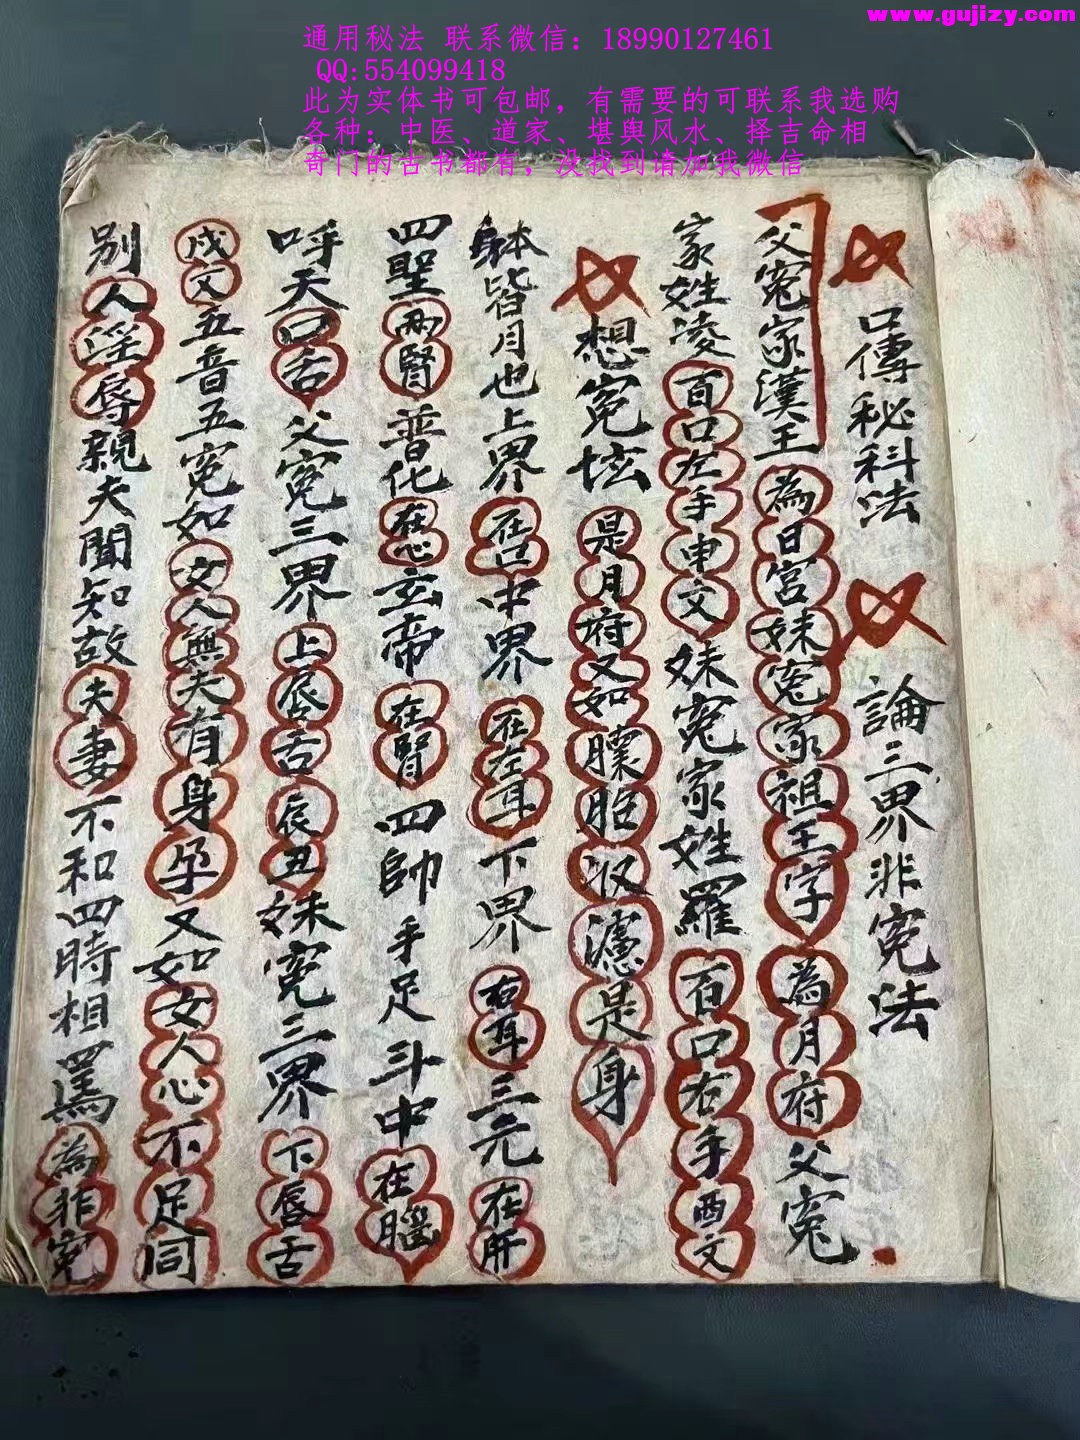 www.gujizy.com
通用秘法 联系微信：18990127461
QQ:554099418
此为实体书可包邮，有需要的可联系我选购
各种：中医、道家、堪舆风水、择吉命相
奇门的古书都有，没找到请加我微信
口傳秘科法 論三界非寃法
父寃家漢王為日宮妹寃家祖王字為月府父寃
家姓凌百口左手申文妹寃家姓羅百口右手酉文
想寃坛是月府又如臁胞汊濾是身
躰皆月也上界在口中界在左耳下界右耳三元在肝
四聖兩腎普化在心玄帝在腎四帥手足斗中在腦
呼天口舌父寃三界上唇舌辰丑妹寃三界下唇舌
戌文五音五寃如女人無夫有身孕又如女人心不足同
別人淫辱親夫聞知故夫妻不和四時相罵為非寃